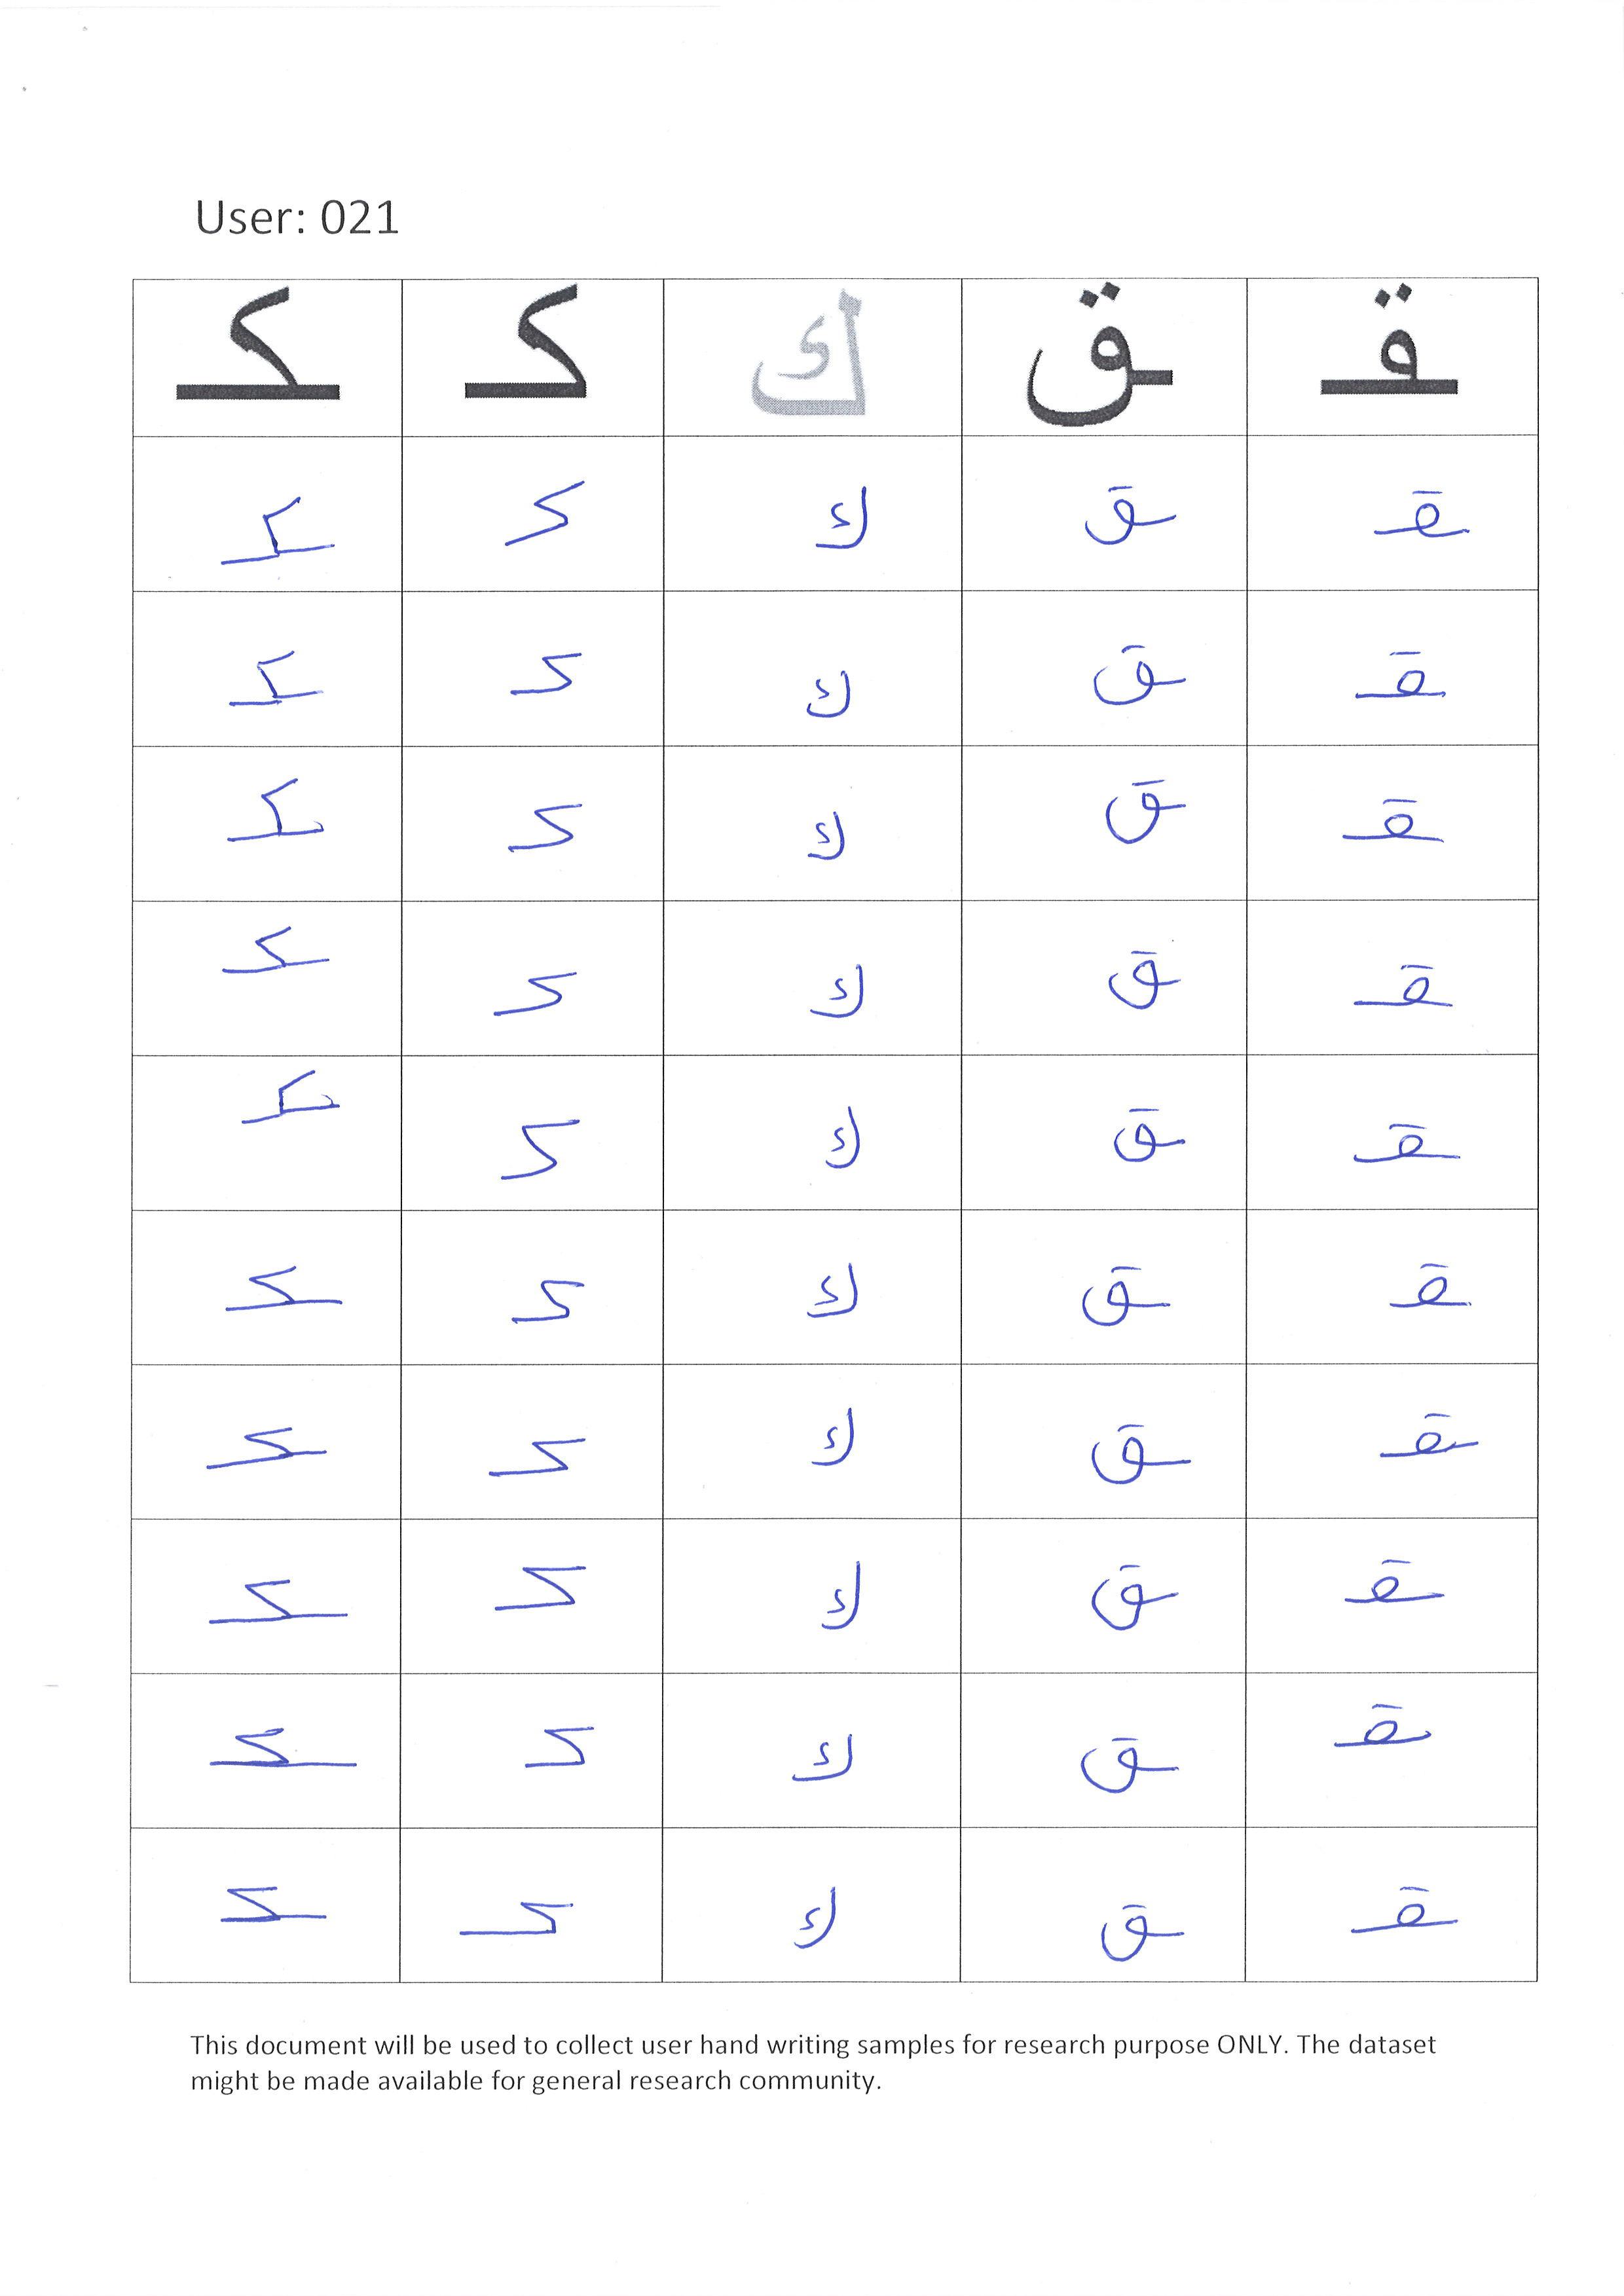 User: 021
ـقـ ـق ك كـ ـكـ
ـقـ ـق ك كـ ـكـ
ـقـ ـق ك كـ ـكـ
ـقـ ـق ك كـ ـكـ
ـقـ ـق ك كـ ـكـ
ـقـ ـق ك كـ ـكـ
ـقـ ـق ك كـ ـكـ
ـقـ ـق ك كـ ـكـ
ـقـ ـق ك كـ ـكـ
ـقـ ـق ك كـ ـكـ
ـقـ ـق ك كـ ـكـ
This document will be used to collect user hand writing samples for research purpose ONLY. The dataset
might be made available for general research community.